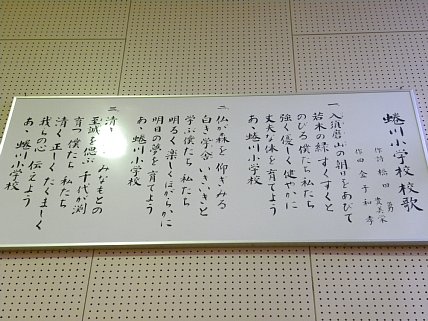 蜷川小学校 校歌
作詩 稲田 勇
作曲 金子和孝
一 入須磨山の朝日をあびて
若木の緑すくすくと
のびる僕たち私たち
強く優しく健やかに
丈夫な体を育てよう
あゝ蜷川小学校
二 仏が森を仰ぎみる
白き学舎いきいきと
学ぶ僕たち私たち
明るく楽しくほがらかに
明日の夢を育てよう
あゝ蜷川小学校
三 清 みなもとの
至誠を偲ぶ千代が渕
育つ僕たち私たち
清く正しくたくましく
我らの心伝えよう
あゝ蜷川小学校